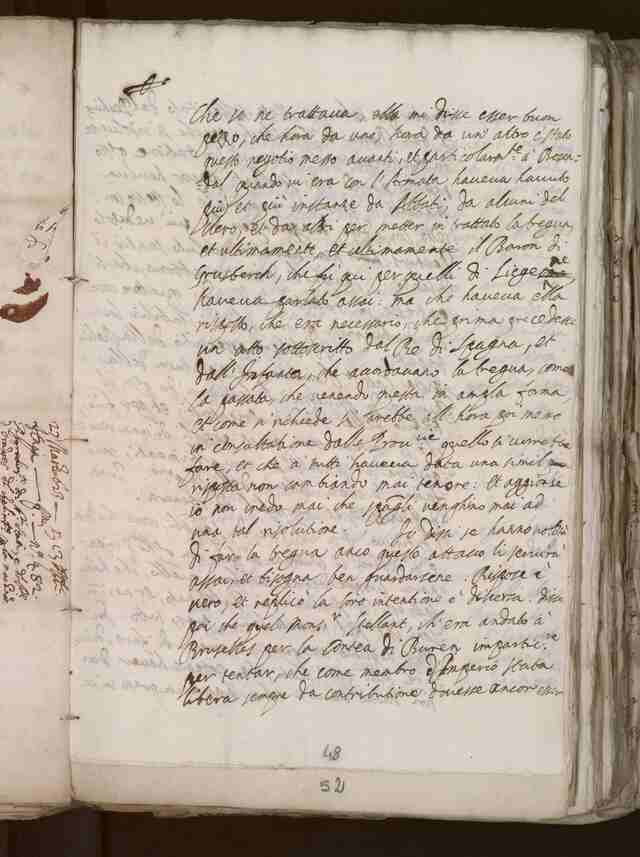 Che se ne trattaua, ella mi disse esser buon
pezzo, che hora da uno, hora da un altro è stato
questo negotio messo auanti, et particolarm.te à
dal quando vi era con l'Armata haueua hauuto
più et più instanze da Abbati, da alcuni del
Clero, et da altri per metter in trattato la tregua,
et ultimamente, et ultimamente il Baron di
Grusberch, che fu qui per quelli di Liege ne
haueua parlato assai: ma che haueua ella
risposto, che era necessario, che prima precedesse
un atto sottoscritto dal Re di Spagna, et
dall'Infanta, che accordauano la tregua, come
la passata, che venendo messa in ampla forma
et come si richiede si sarebbe all'hora poi messo
in consultatione dalle Prou.cie quello si uorrebbe
fare, et che à tutti haueua data una simil
risposta non cambiando mai tenore: Et aggionse
io non credo mai che Spagnoli venghino mai ad
una tal risolutione. Io dissi se hanno
di far la tregua anco questo attacco li seruirà
assai, et bisogna ben guardarsene. Rispose è
vero, et replicò la loro intentione è diuersa. Disse
poi che quel Mons.r Stellant, ch'era andato à
Bruselles per la Contea di Buren
per tentar, che come membro d'Imperio staua
libera sempre da contributione douesse ancor esser
48
52